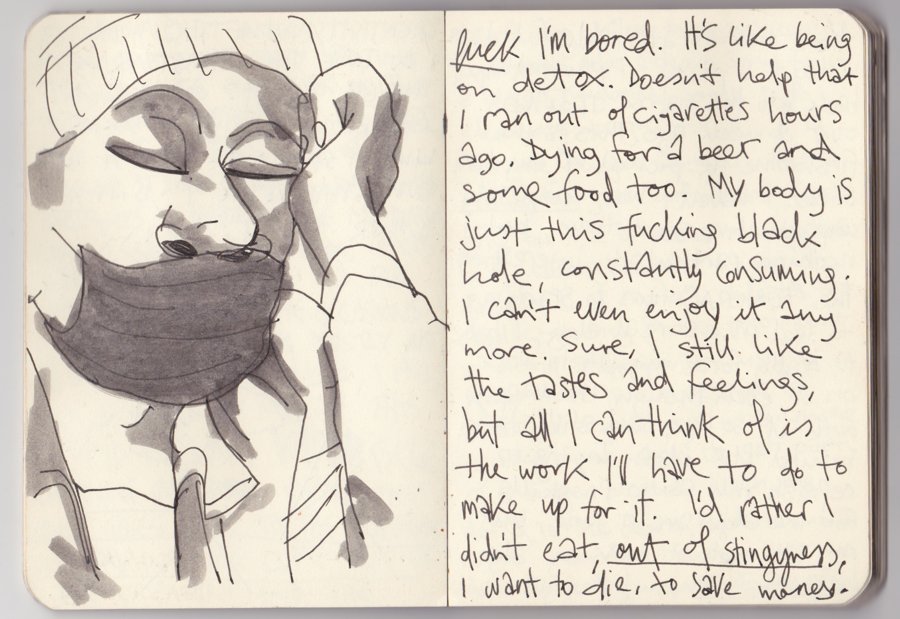 fuck I'm bored. It's like being
on detox. Doesn't help that
I ran out of cigarettes hours
ago. Dying for a beer and
some food too. My body is
just this fucking black
hole, constantly consuming.
I can't even enjoy it any
more. Sure, I still like
the tastes and feelings,
but all I can think of is
the work I'll have to do to
make up for it. I'd rather I
didn't eat, out of stingyness,
I want to die, to save money.